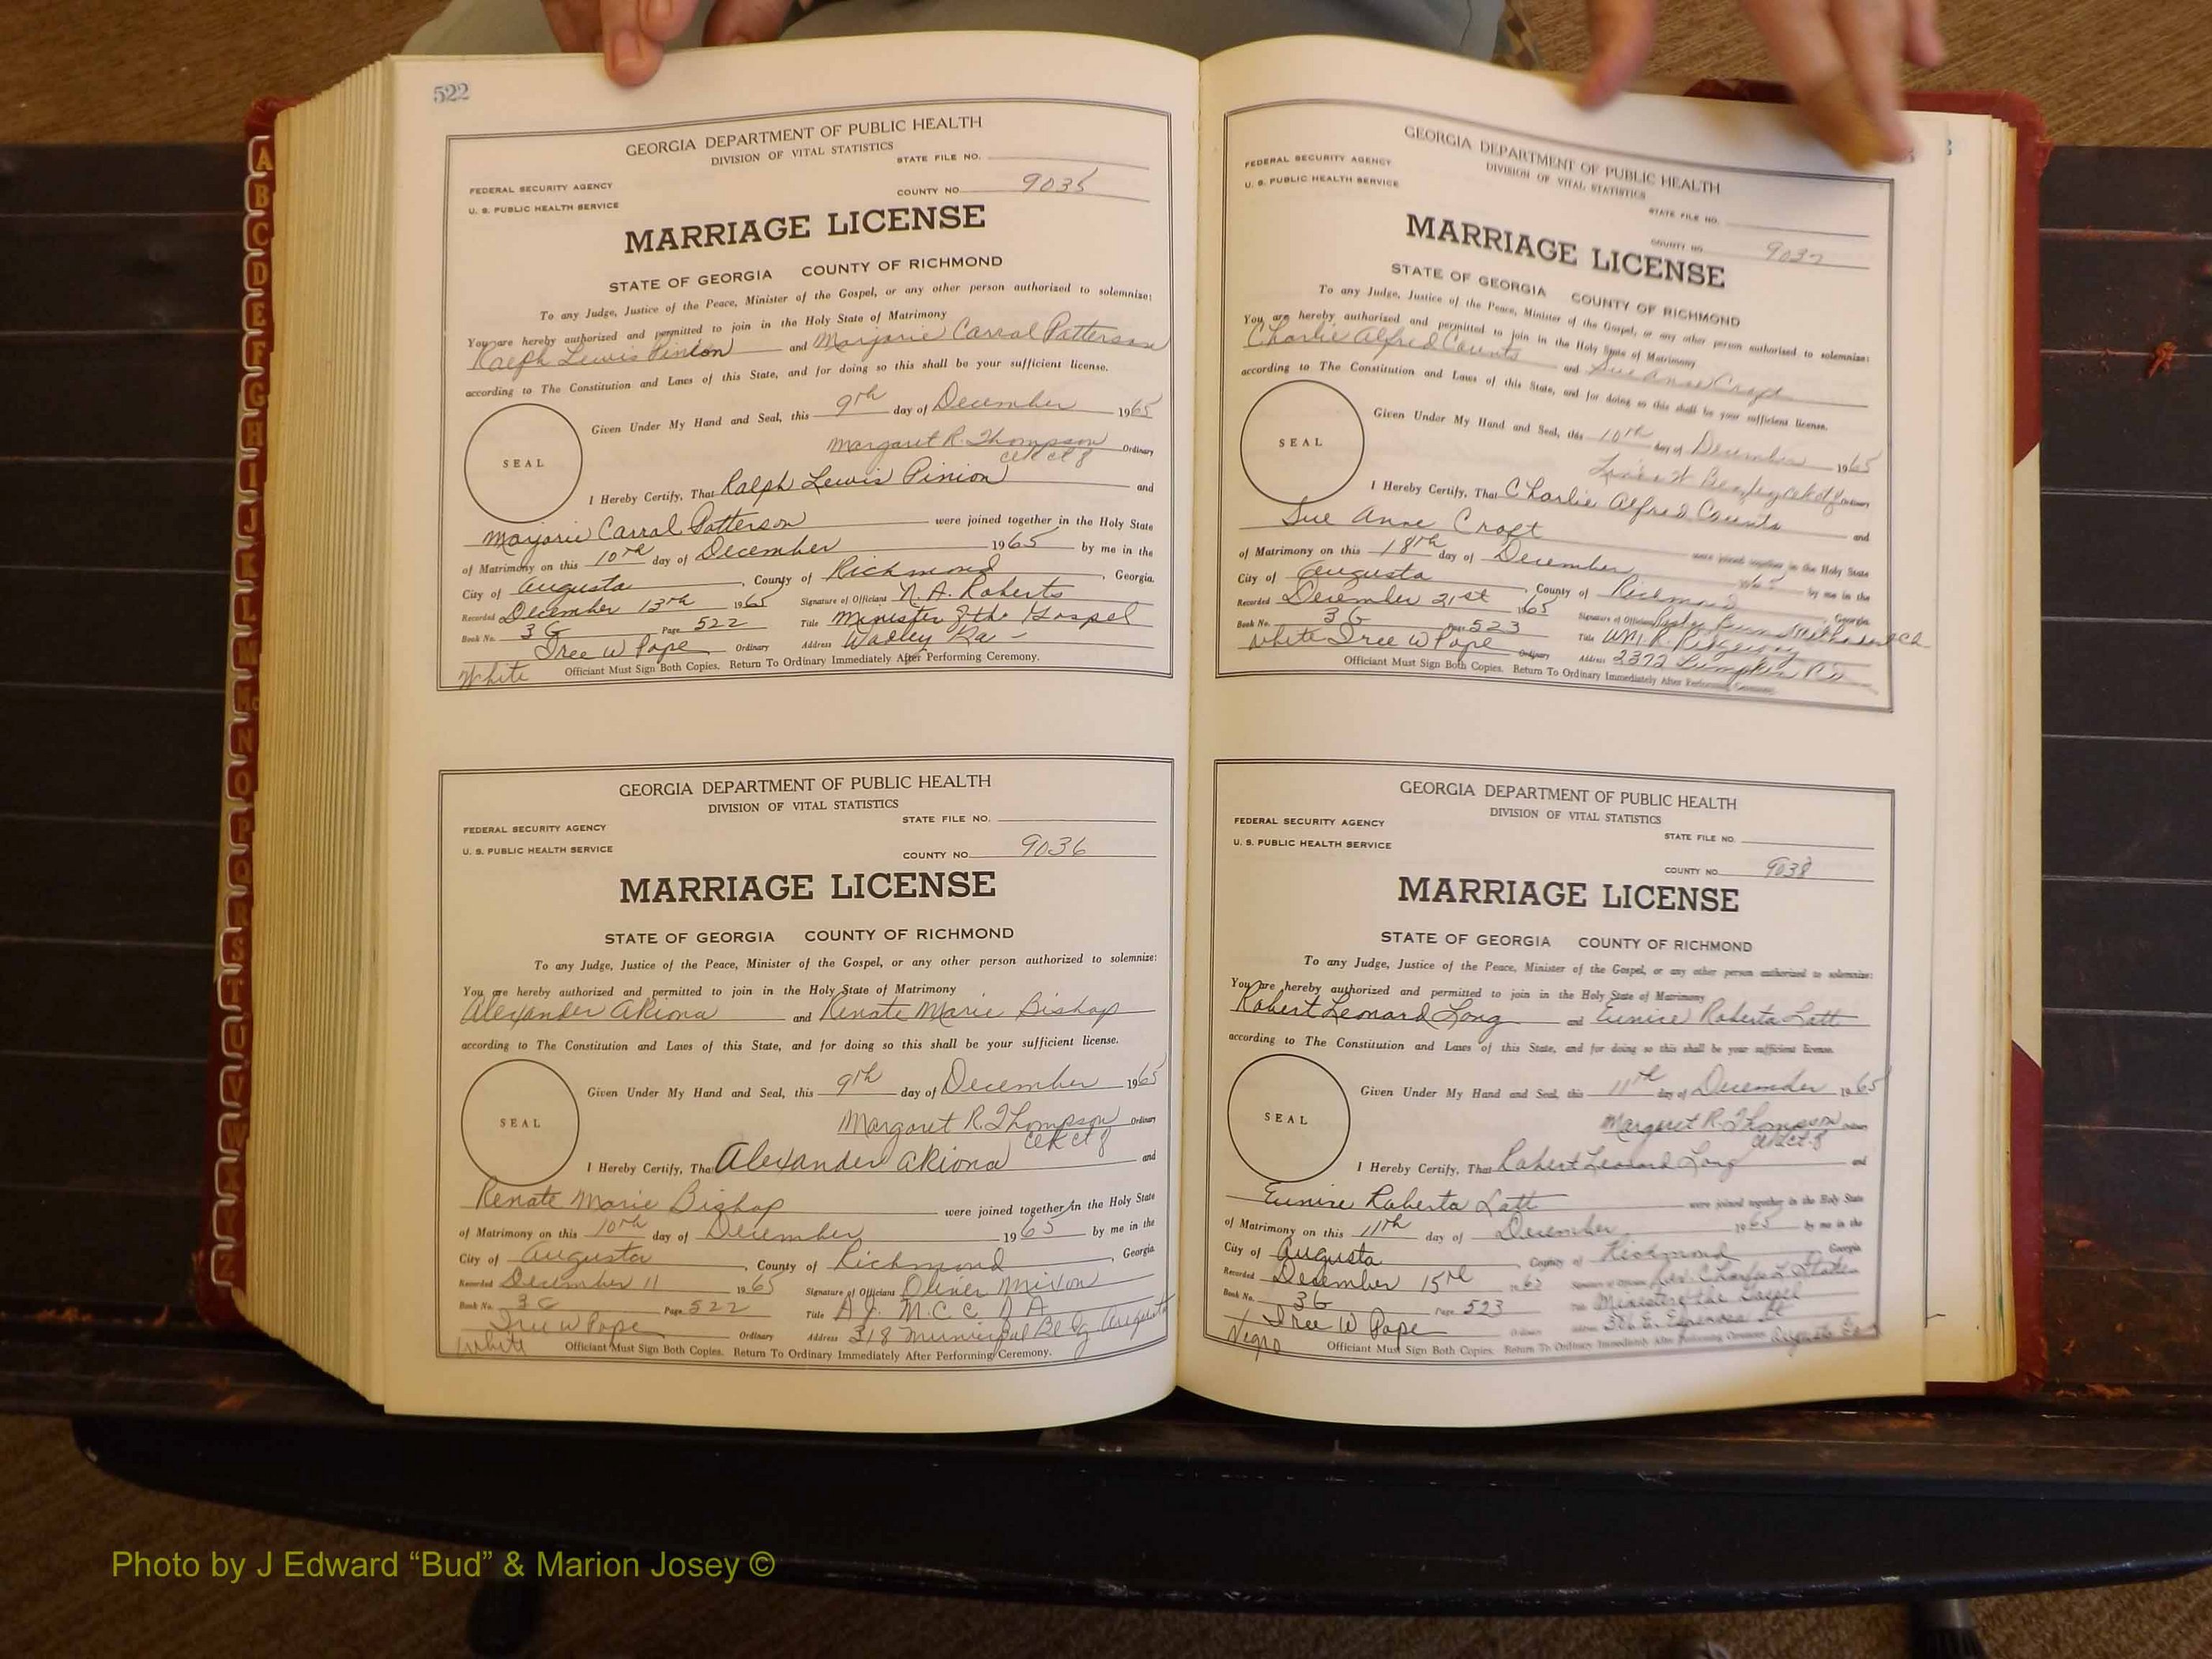 522
GEORGIA DEPARTMENT OF PUBLIC HEALTH
DIVISION OF VITAL STATISTICS
STATE FILE NO.
FEDERAL SECURITY AGENCY
U. S. PUBLIC HEALTH SERVICE
COUNTY NO. 9035
MARRIAGE LICENSE
STATE OF GEORGIA COUNTY OF RICHMOND
To any Judge, Justice of the Peace, Minister of the Gospel, or any other person authorized to solemnize:
You are hereby authorized and permitted to join in the Holy State of Matrimony
Ralph Lewis Pinion and Marjorie Carral Patterson
according to The Constitution and Laws of this State, and for doing so this shall be your sufficient license.
Given Under My Hand and Seal, this 9th day of December 1965
SEAL
Margaret R. Thompson Ordinary
I Hereby Certify, That Ralph Lewis Pinion and
Marjorie Carral Patterson were joined together in the Holy State
of Matrimony on this 10th day of December 1965 by me in the
City of Augusta, County of Richmond, Georgia.
Recorded December 13th 1965 Signature of Officiant N. A. Roberts
Book No. 3G Page 522 Title Minister of the Gospel
Iree W Pope Ordinary Address Wadley Ga
White Officiant Must Sign Both Copies. Return To Ordinary Immediately After Performing Ceremony.
GEORGIA DEPARTMENT OF PUBLIC HEALTH
DIVISION OF VITAL STATISTICS
STATE FILE NO.
FEDERAL SECURITY AGENCY
U. S. PUBLIC HEALTH SERVICE
COUNTY NO. 9036
MARRIAGE LICENSE
STATE OF GEORGIA COUNTY OF RICHMOND
To any Judge, Justice of the Peace, Minister of the Gospel, or any other person authorized to solemnize:
You are hereby authorized and permitted to join in the Holy State of Matrimony
Alexander Akiona and Renate Marie Bishop
according to The Constitution and Laws of this State, and for doing so this shall be your sufficient license.
Given Under My Hand and Seal, this 9th day of December 1965
SEAL
Margaret R. Thompson Ordinary
I Hereby Certify, That Alexander Akiona and
Renate Marie Bishop were joined together in the Holy State
of Matrimony on this 10th day of December 1965 by me in the
City of Augusta, County of Richmond, Georgia
Recorded December 11 1965 Signature of Officiant Oliver Mixon
Book No. 3G Page 522 Title
Iree W Pope Ordinary Address 318 Municipal Bldg Augusta
White Officiant Must Sign Both Copies. Return To Ordinary Immediately After Performing Ceremony.
GEORGIA DEPARTMENT OF PUBLIC HEALTH
DIVISION OF VITAL STATISTICS
STATE FILE NO.
FEDERAL SECURITY AGENCY
U. S. PUBLIC HEALTH SERVICE
COUNTY NO. 9037
MARRIAGE LICENSE
STATE OF GEORGIA COUNTY OF RICHMOND
To any Judge, Justice of the Peace, Minister of the Gospel, or any other person authorized to solemnize:
You are hereby authorized and permitted to join in the Holy State of Matrimony
Charlie Alfred Counts and Sue Anne Croft
according to The Constitution and Laws of this State, and for doing so this shall be your sufficient license.
Given Under My Hand and Seal, this 10th day of December 1965
SEAL
Ordinary
I Hereby Certify, That Charlie Alfred Counts and
Sue Anne Croft were joined together in the Holy State
of Matrimony on this 18th day of December 1965 by me in the
City of Augusta, County of Richmond, Georgia
Recorded December 21st 1965 Signature of Officiant
Book No. 3G Page 523 Title Wm. R. Ridgeway
White Iree W Pope Ordinary Address 2372 Lumpkin Rd
Officiant Must Sign Both Copies. Return To Ordinary Immediately After Performing Ceremony.
GEORGIA DEPARTMENT OF PUBLIC HEALTH
DIVISION OF VITAL STATISTICS
STATE FILE NO.
FEDERAL SECURITY AGENCY
U. S. PUBLIC HEALTH SERVICE
COUNTY NO. 9038
MARRIAGE LICENSE
STATE OF GEORGIA COUNTY OF RICHMOND
To any Judge, Justice of the Peace, Minister of the Gospel, or any other person authorized to solemnize:
You are hereby authorized and permitted to join in the Holy State of Matrimony
Robert Leonard Long and Eunice Roberta Latt
according to The Constitution and Laws of this State, and for doing so this shall be your sufficient license.
Given Under My Hand and Seal, this 11th day of December 1965
SEAL
Margaret R. Thompson Ordinary
I Hereby Certify, That Robert Leonard Long and
Eunice Roberta Latt were joined together in the Holy State
of Matrimony on this 11th day of December 1965 by me in the
City of Augusta County of Richmond Georgia
Recorded December 15th 1965 Signature of Officiant Rev. Charles L.
Book No. 3G Page 523 Title Minister of the Gospel
Iree W Pope Ordinary Address
Negro Officiant Must Sign Both Copies. Return To Ordinary Immediately After Performing Ceremony. Augusta Ga
A
B
C
D
E
F
G
H
I
J
K
L
M
Mc
N
O
P
Q
R
S
T
U
V
W
X
Y
Z
Photo by J Edward “Bud” & Marion Josey ©